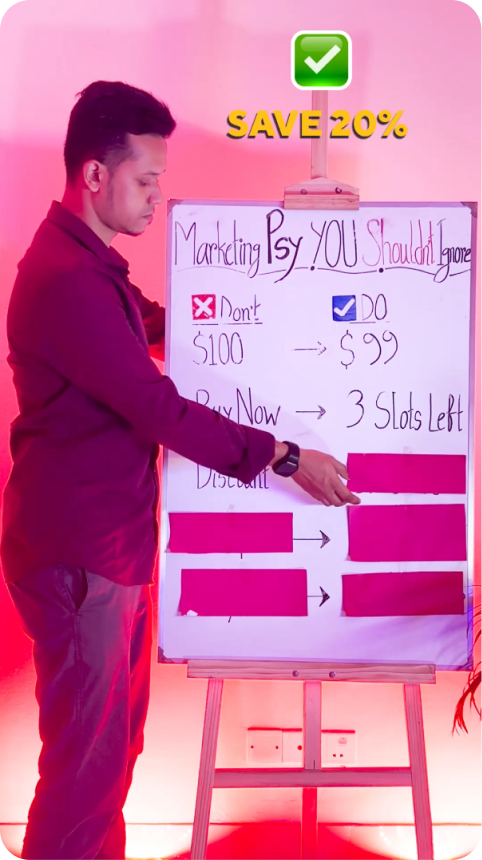 SAVE 20%
Marketing Psy YOU Shouldn't Ignore
Don't DO
$100 → $99
Buy Now → 3 Slots Left
Discount